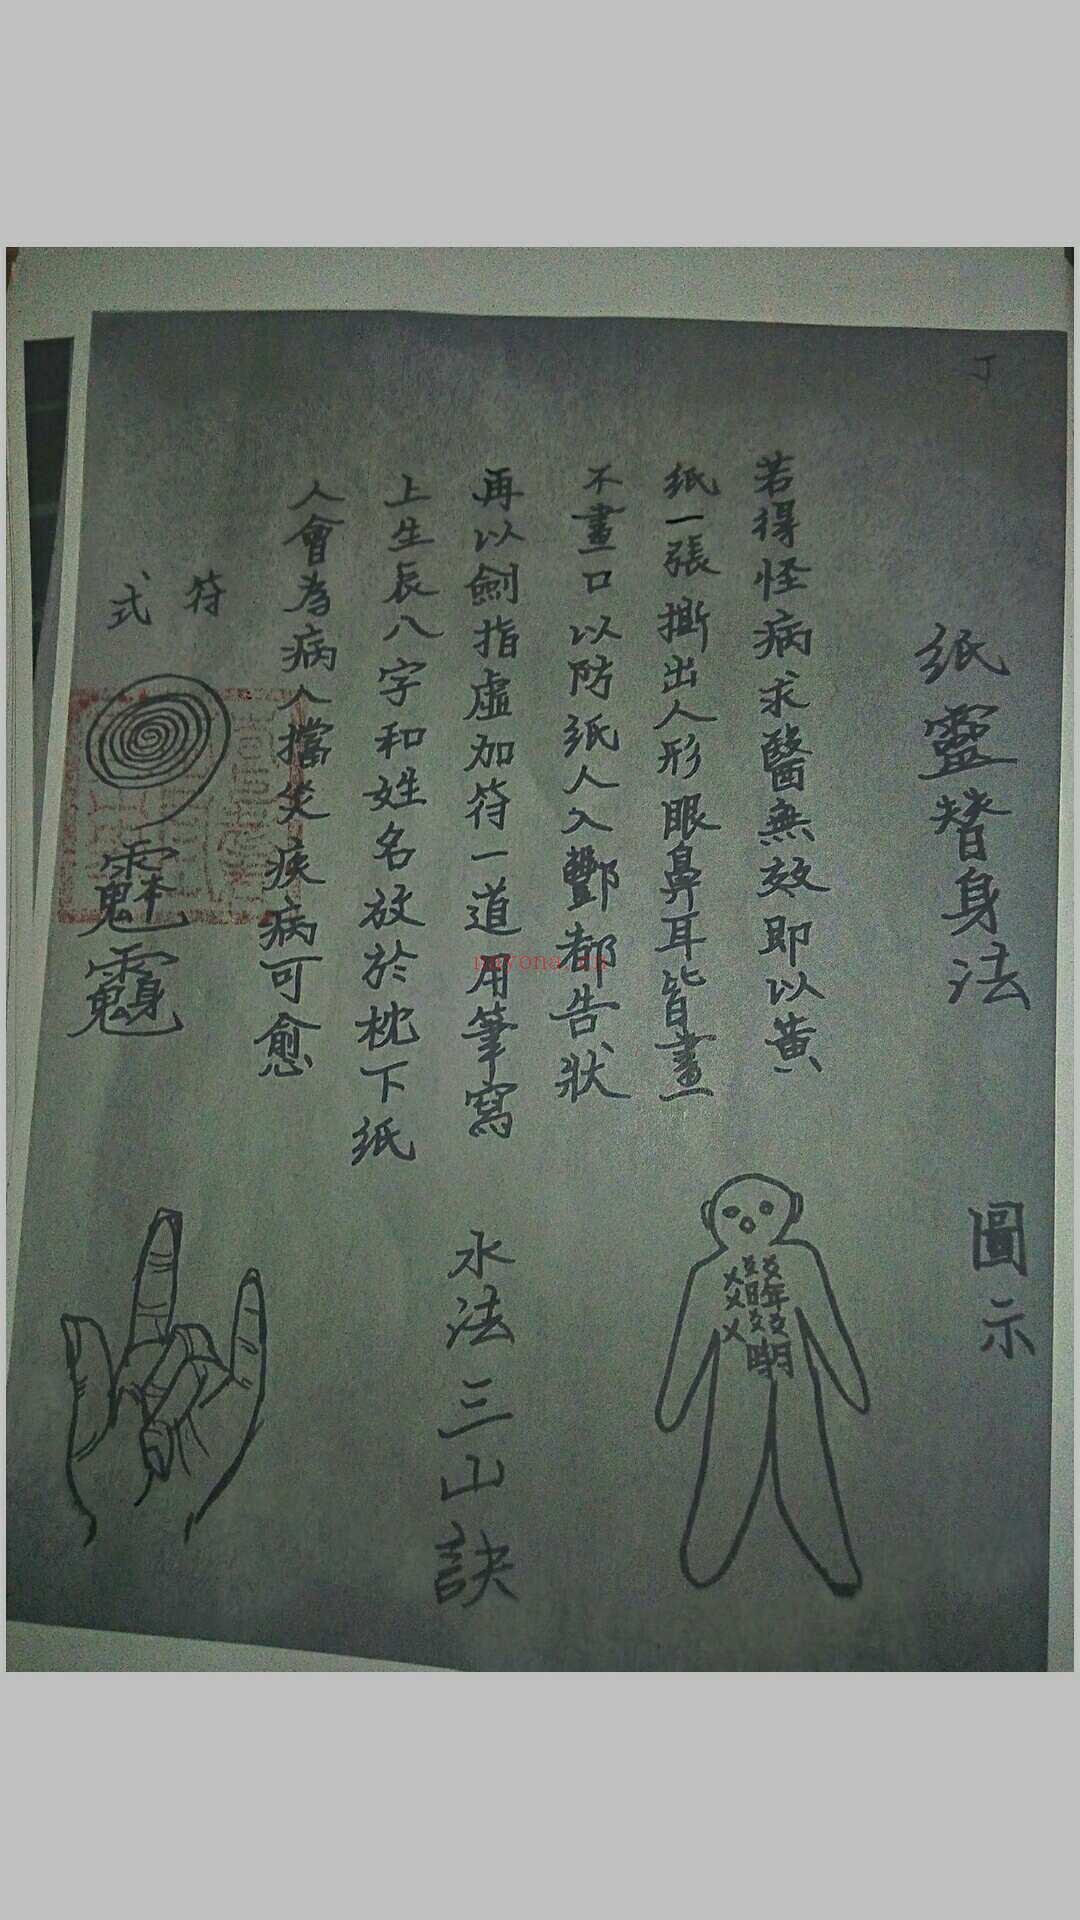 丁
紙靈替身法
圖示
若得怪病求醫無效即以黃
紙一張撕出人形眼鼻耳皆畫
不畫口以防紙人入酆都告狀
再以劍指虛加符一道用筆寫
上生辰八字和姓名放於枕下紙
人會為病人擋災疾病可愈
水法三山訣
符式